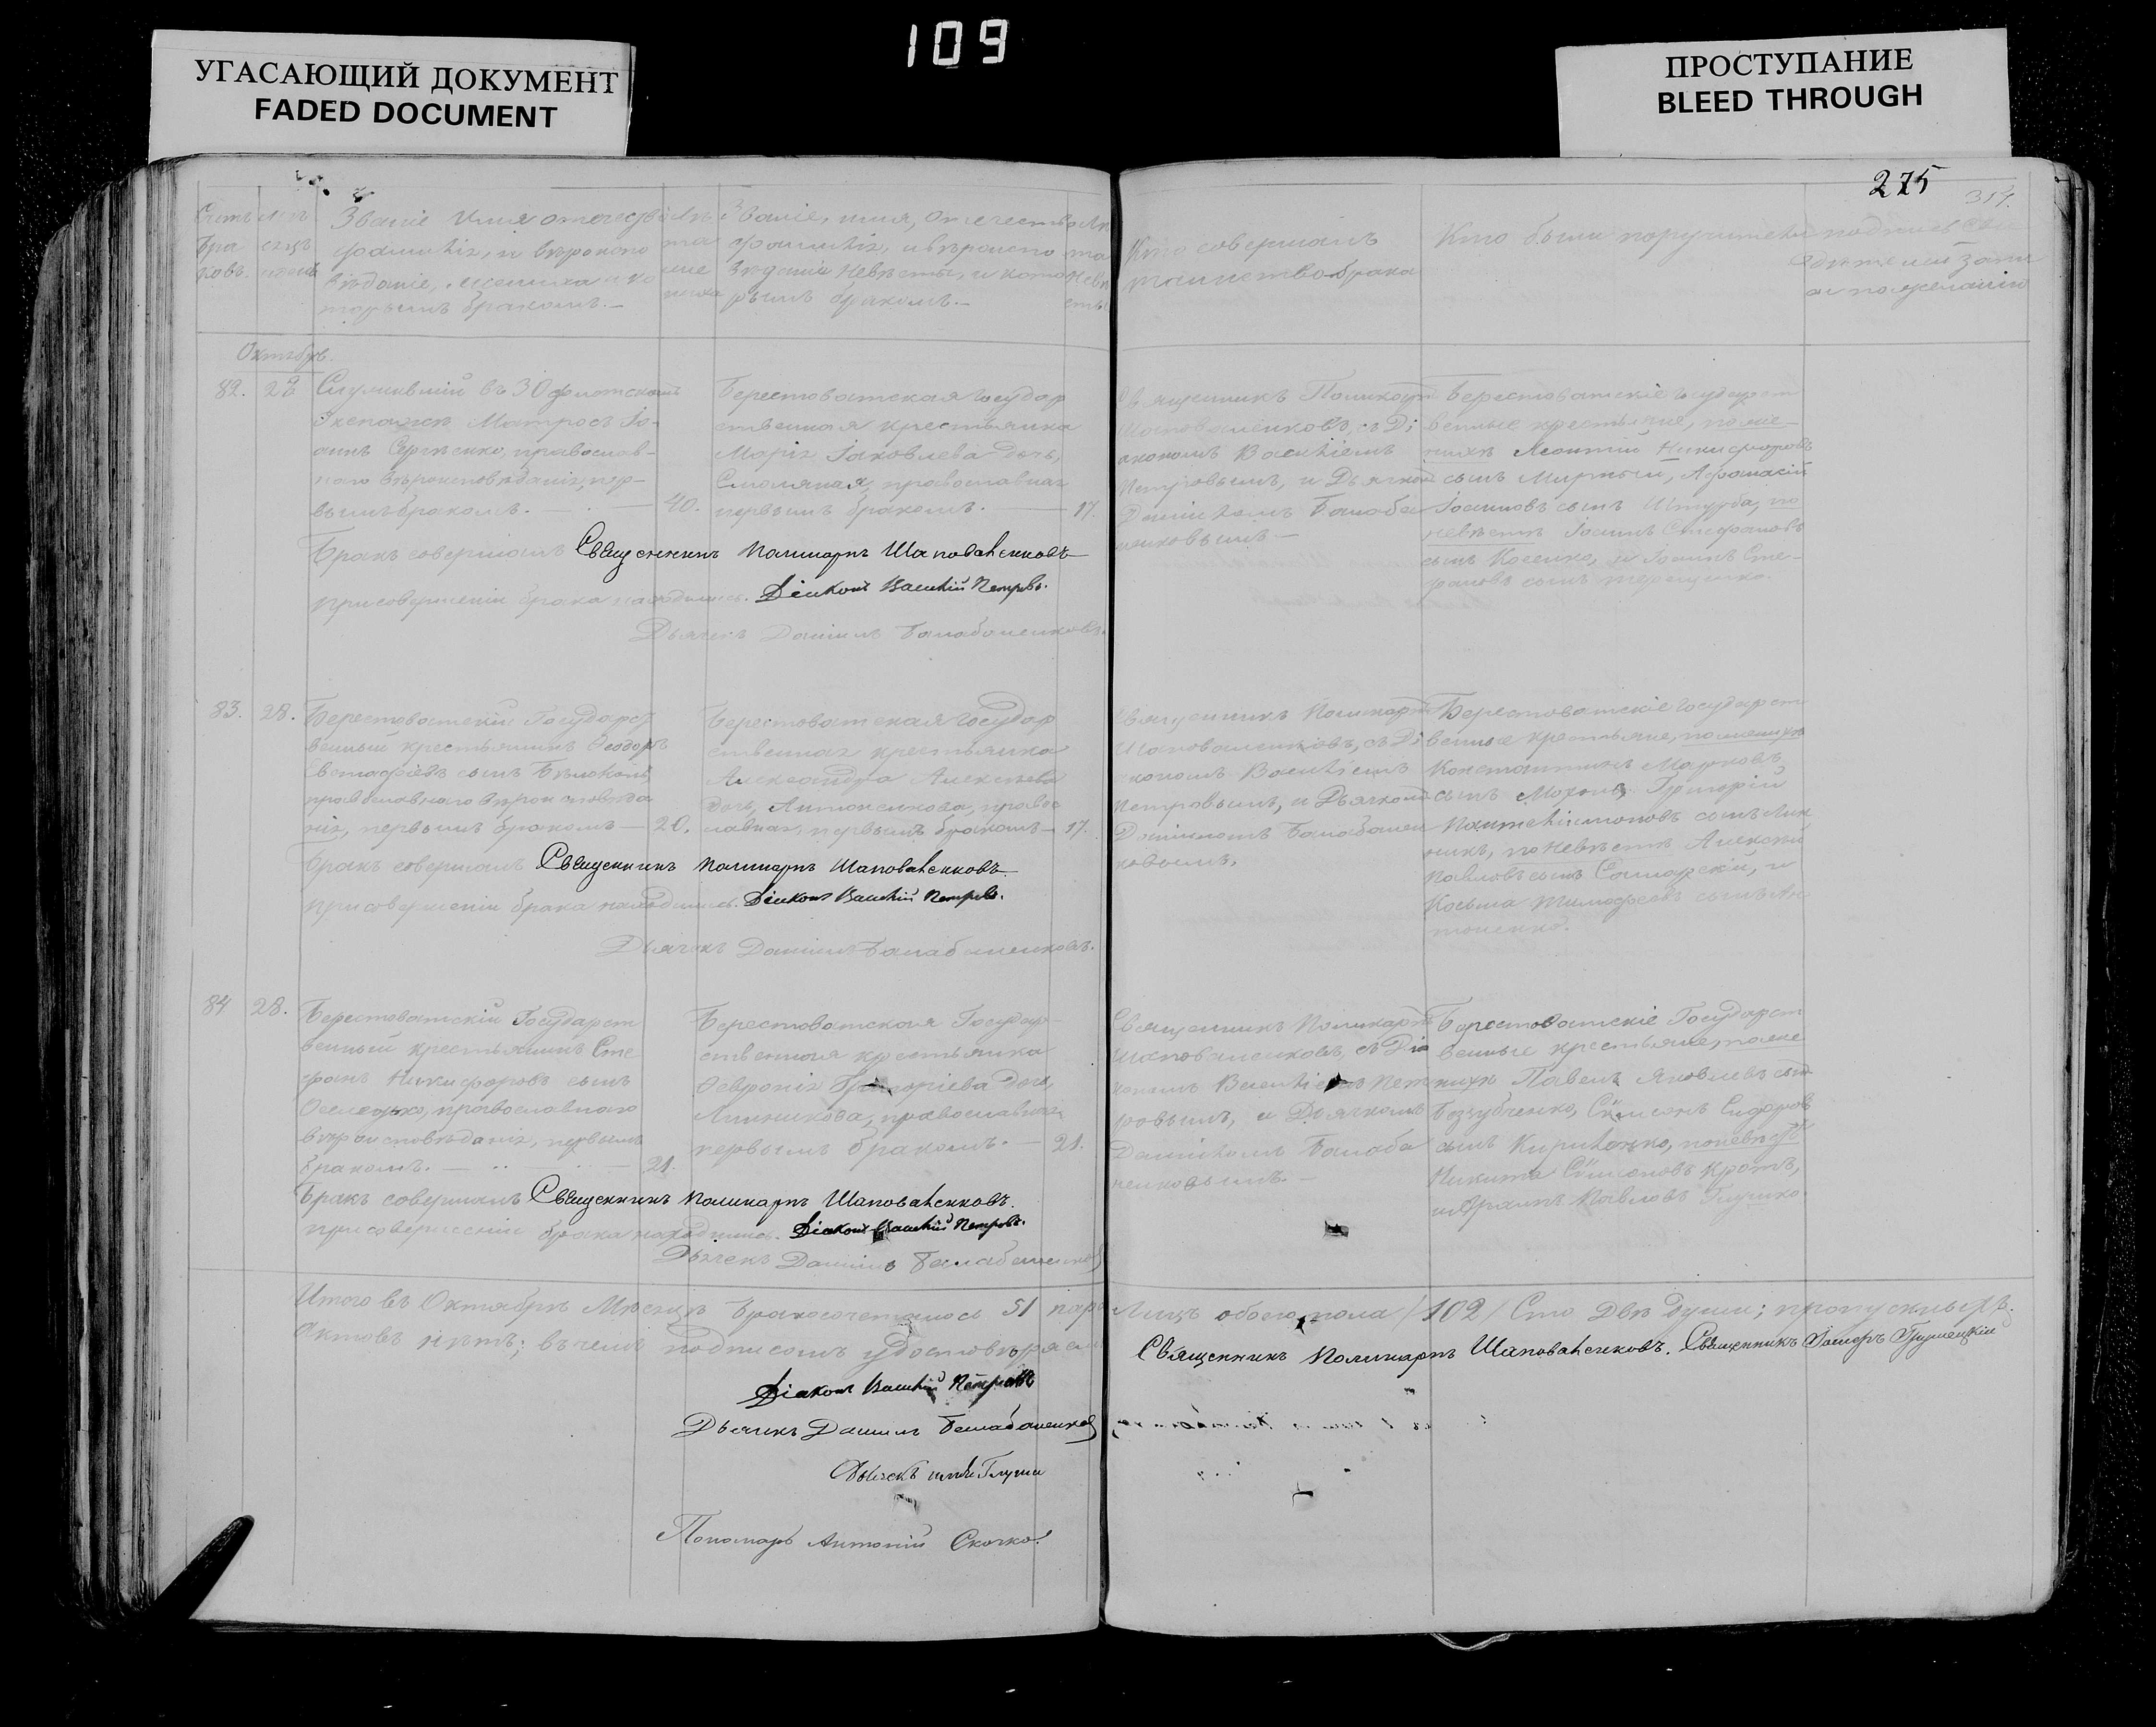 109
УГАСАЮЩИЙ ДОКУМЕНТ
FADED DOCUMENT
ПРОСТУПАНИЕ
BLEED THROUGH
275
Счетъ
бра
ковъ.
Званіе Имя отечество
фамилія, и вѣроиспо
вѣданіе, жениха и ко
торымъ бракомъ.—
Лѣ
та
же
ниха
Званіе, имя, отечество
фамилія, и вѣроиспо
вѣданіе невѣсты, и кото
рымъ бракомъ.—
Лѣ
та
невѣ
сты
Кто совершалъ
таинство брака
Кто были поручители
подпись сви
дѣтелей запи
си по желанію
Октябрь.
82.
Служившій въ 30 флотскомъ
Экепажѣ Матросъ Іо-
аннъ Сергѣенко, православ-
наго вѣроисповѣданія, пер-
вымъ бракомъ.
40.
Берестоватская государ
ственная крестьянка
Марія Іаковлева дочь,
Смоляная, православная
первымъ бракомъ.
17.
Священникъ Поликарпъ
Шаповаленковъ, съ Ді
акономъ Василіемъ
Петровымъ, и Дьячкомъ
Даніиломъ Балаба
ненковымъ.—
Берестоватскіе государст
венные крестьяне, по же-
нихѣ Леонтій Никифоровъ
сынъ Мирный, Афанасій
Іоанновъ сынъ Штурба, по
невѣстѣ Іоаннъ Стефановъ
сынъ Косенко, и Іоаннъ Сте-
фановъ сынъ Терещенко.
Бракъ совершалъ Священникъ Поликарпъ Шаповаленковъ
при совершеніи брака находились. Діаконъ Василій Петровъ.
Дьячекъ Даніилъ Балабаненковъ.
83.
28.
Берестоватскій Государст
венный крестьянинъ Ѳеодоръ
Евстафіевъ сынъ Бѣлоконь,
православнаго вѣроисповѣда
нія, первымъ бракомъ — 20.
Берестоватская государ
ственная крестьянка
Александра Алексѣева
дочь, Антоненкова, правос
лавная, первымъ бракомъ — 17.
Священникъ Поликарпъ
Шаповаленковъ, съ Ді
акономъ Василіемъ
Петровымъ, и Дьячкомъ
Даніиломъ Балабанен
ковымъ.
Берестоватскіе государст
венные крестьяне, по женихѣ
Константинъ Марковъ
сынъ Григорій
Пантелиимоновъ сынъ Лин
никъ, по невѣстѣ Алексѣй
Павловъ сынъ Самарскій, и
Косьма Тимофеевъ сынъ Ан
тоненко.
Бракъ совершалъ Священникъ Поликарпъ Шаповаленковъ
при совершеніи брака находились. Діаконъ Василій Петровъ.
Дьячекъ Даніилъ Балабаненковъ.
84
28.
Берестоватскій Государст
венный крестьянинъ Сте
фанъ Никифоровъ сынъ
Оселедько, православнаго
вѣроисповѣданія, первымъ
бракомъ.
21.
Берестоватская Государ-
ственная крестьянка
Ѳевронія Григоріева дочь,
Линникова, православная
первымъ бракомъ. — 21.
Священникъ Поликарпъ
Шаповаленковъ, съ Діа
кономъ Василіемъ Пет
ровымъ, и Дьячкомъ
Даніиломъ Балаба
ненковымъ.—
Берестоватскіе Государст
венные крестьяне, по же
нихѣ Павелъ Яковлевъ сынъ
Беззубченко, Сѵмеонъ Сидоровъ
сынъ Кириленко, по невѣстѣ
Никита Сѵмеоновъ Кротъ,
Павловъ Глушко.
Бракъ совершалъ Священникъ Поликарпъ Шаповаленковъ.
при совершеніи брака находились. Діаконъ Василій Петровъ.
Дьячекъ Даніилъ Балабаненковъ
Итого въ Октябрѣ Мѣсяцѣ бракосочеталось 51 паръ Лицъ обоего пола /102/ Сто Двѣ Души; пропускныхъ
Актовъ нѣтъ; въ чемъ подписомъ удостовѣряемъ
Священникъ Поликарпъ Шаповаленковъ. Священникъ
Діаконъ Василій Петровъ
Дьячекъ Даніилъ Балабаненковъ
Пономарь Антоній Скочко.